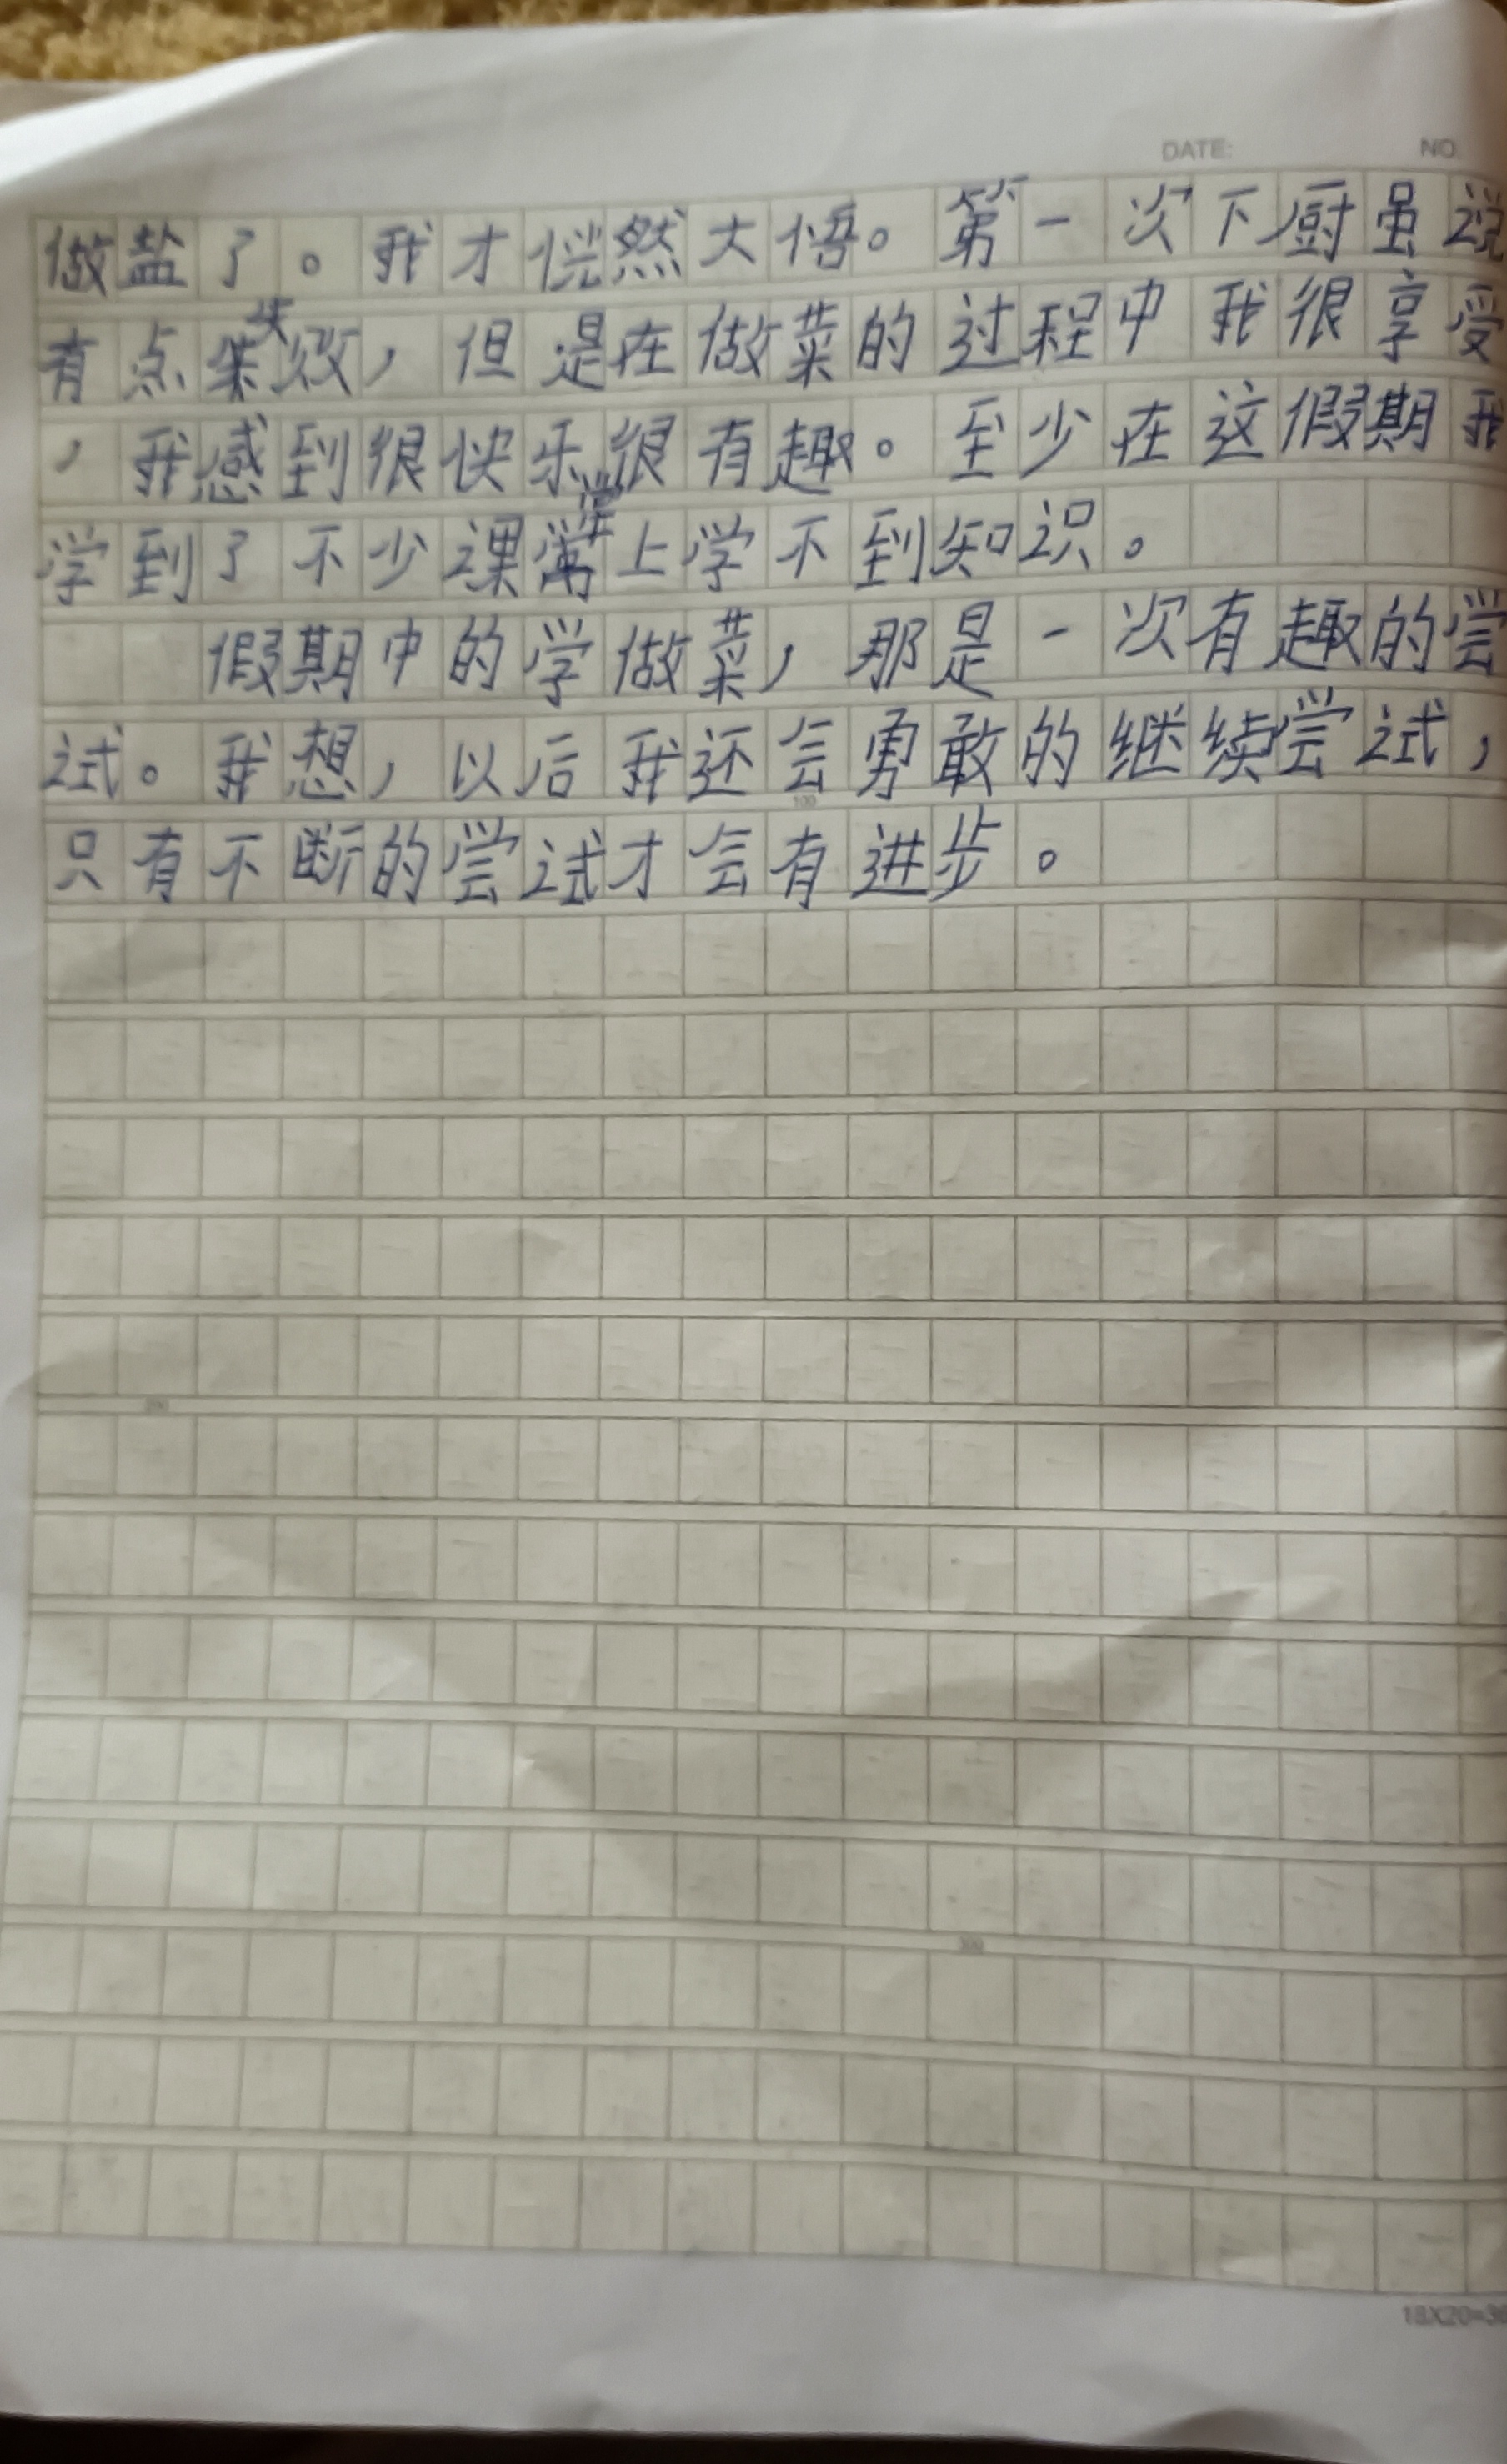 DATE: NO
做盐了。我才恍然大悟。第一次下厨虽说
有点失败，但是在做菜的过程中我很享受
，我感到很快乐很有趣。至少在这假期我
学到了不少课堂上学不到知识。
假期中的学做菜，那是一次有趣的尝
试。我想，以后我还会勇敢的继续尝试，
只有不断的尝试才会有进步。
100
200
300
18X20=36